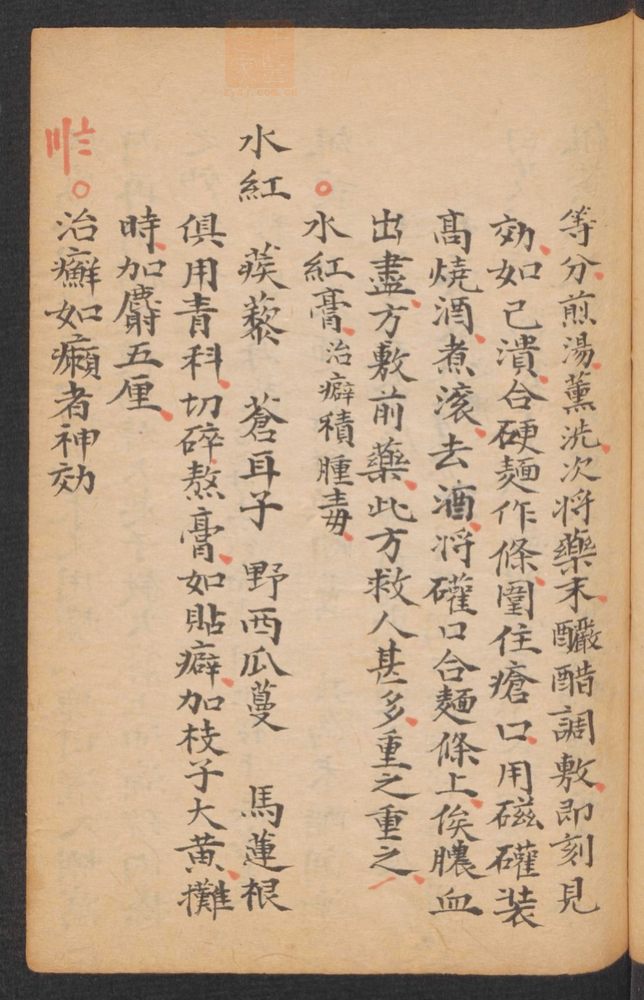 等分煎湯薰洗次將藥末釅醋調敷即刻見
効如已潰合硬麵作條圍住瘡口用磁礶裝
高燒酒煮滚去酒將礶口合麵條上俟膿血
出盡方敷前藥此方救人甚多重之重之
水紅膏治癖積腫毒
水紅 蒺藜 蒼耳子 野西瓜蔓 馬蓮根
俱用青科切碎熬膏如貼癖加枝子大黄攤
時加麝五厘
治癬如癩者神効